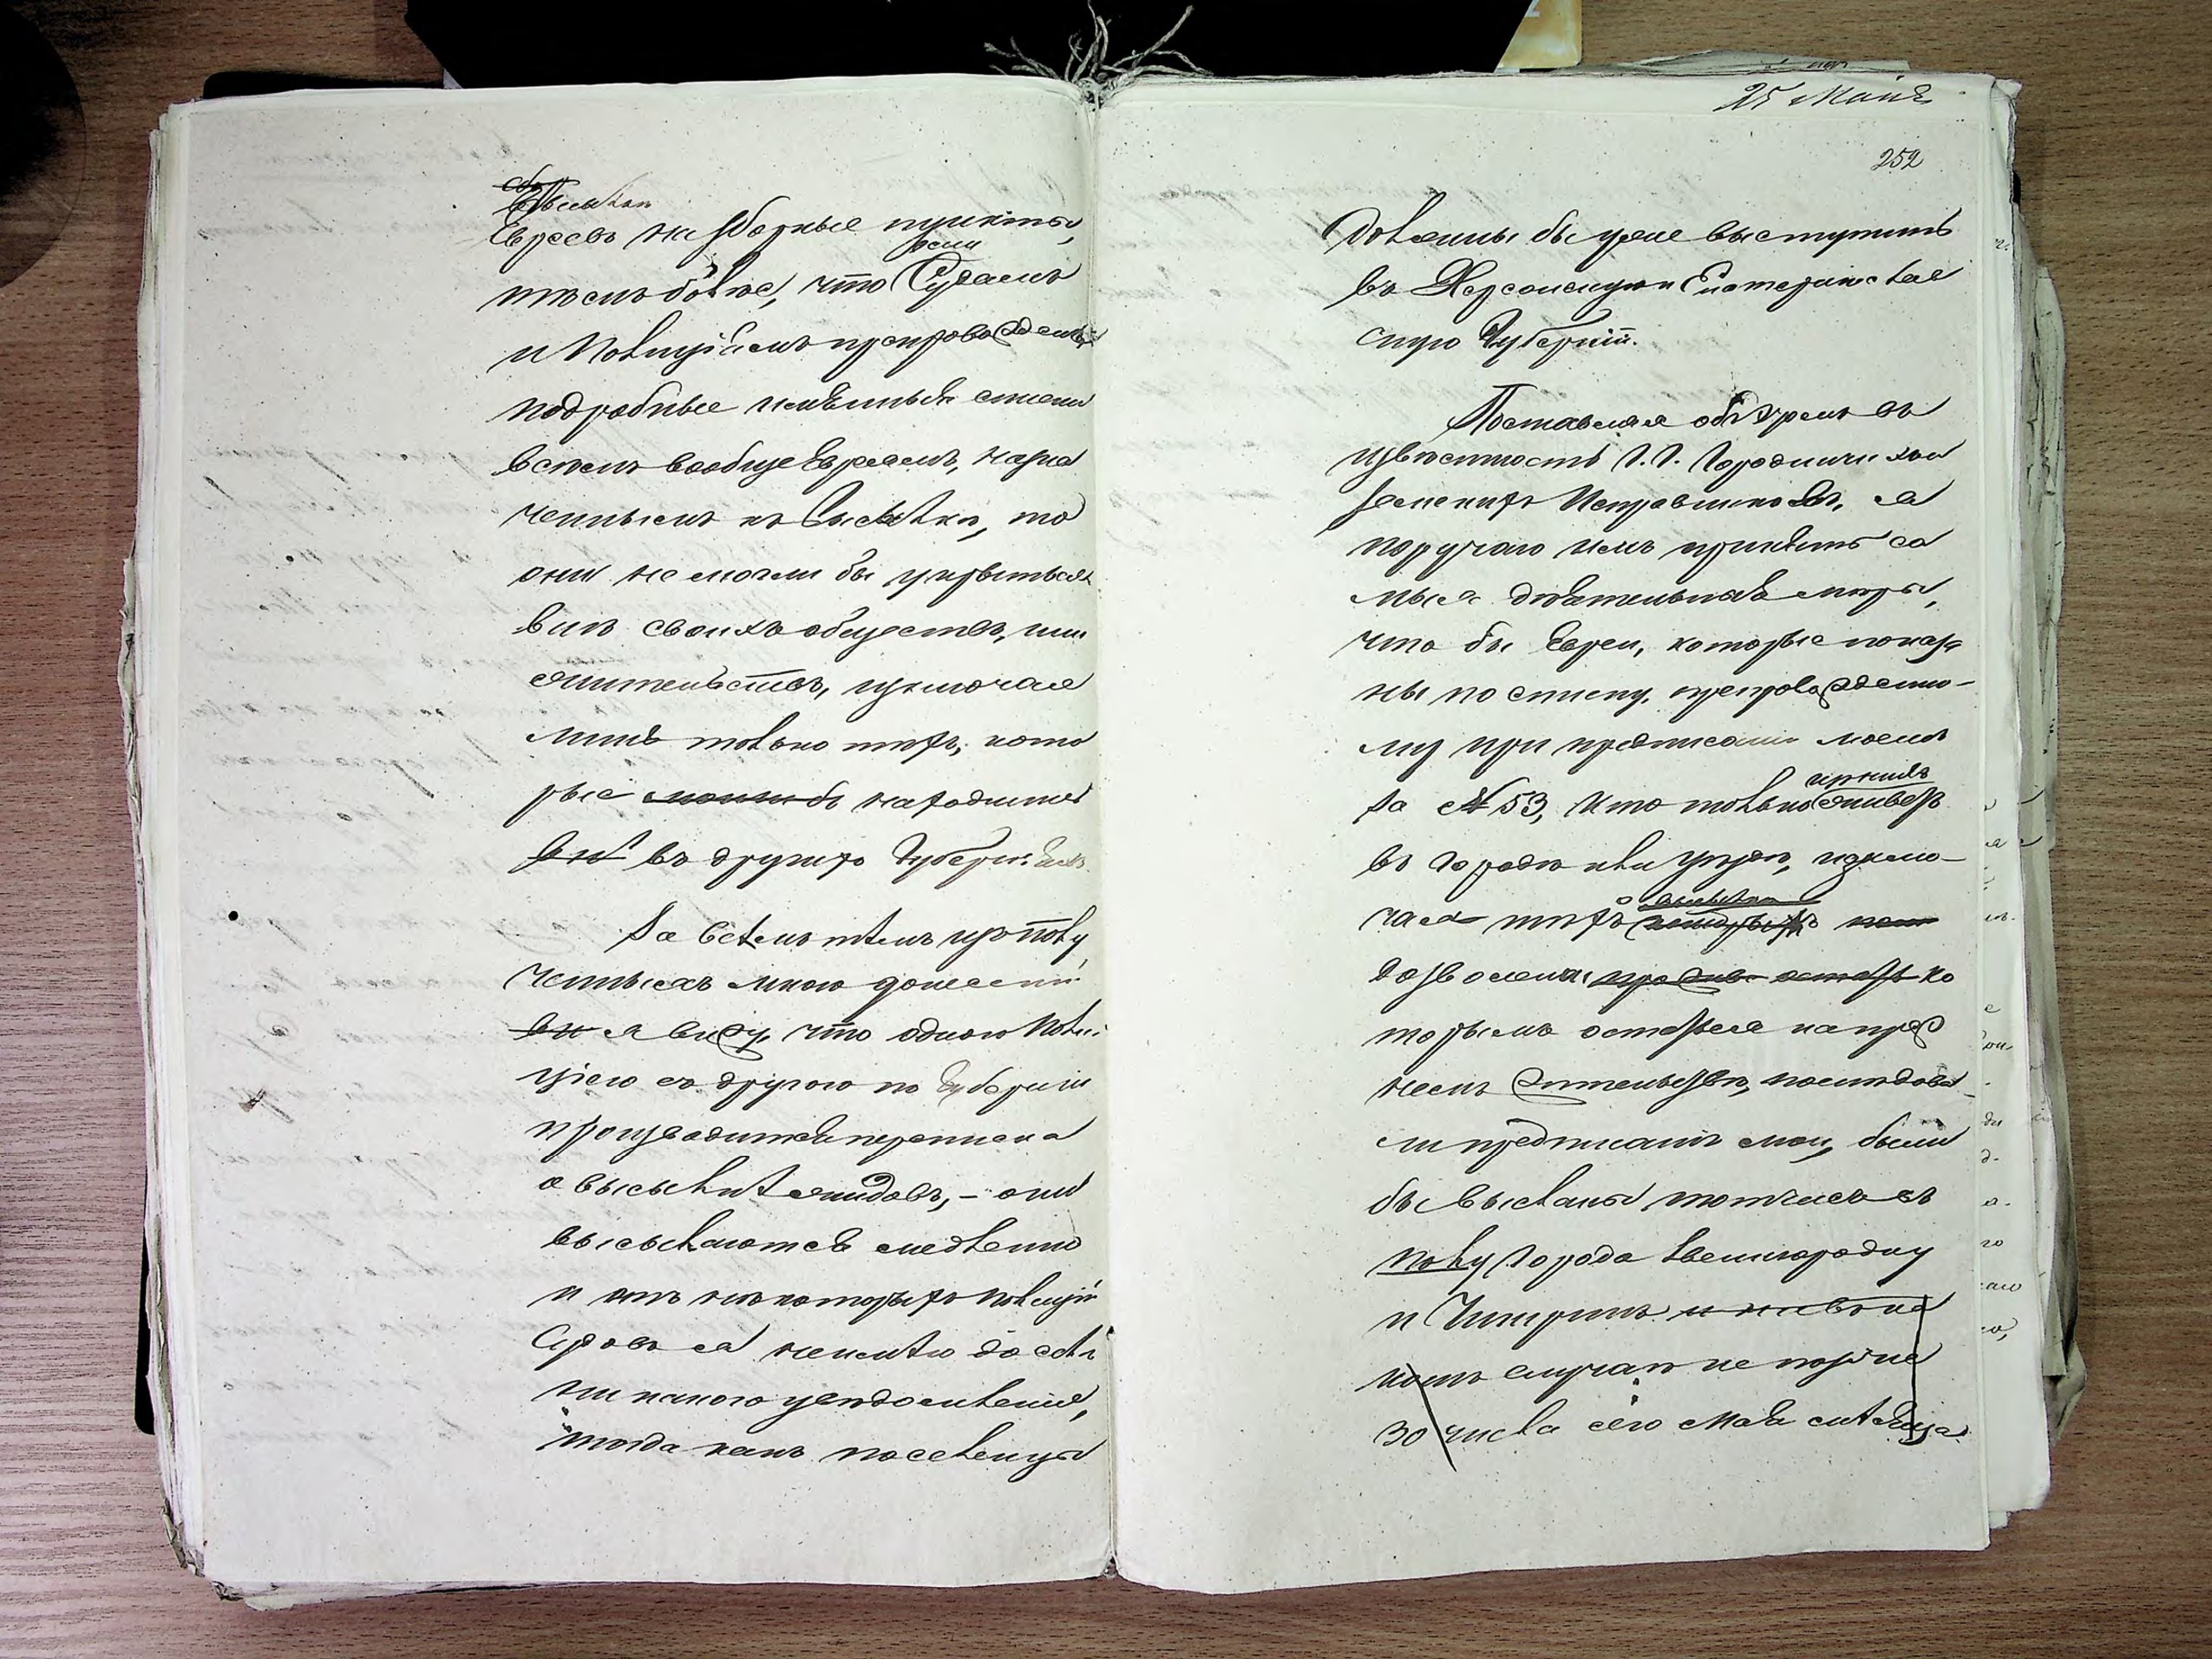 высылкѣ
Евреевъ на сборные пункты,
тѣмъ болѣе, что Судамъ
и Полиціямъ препровождены
подробные именные списки
всѣмъ вообще Евреямъ, назна
ченнымъ къ высылкѣ, то
они не могли бы укрыться
внѣ своихъ обществъ, или
жительствъ, изключая
лишь только тѣхъ, кото
рые находится
въ другихъ Губерн:
За всѣмъ тѣмъ изъ полу
ченныхъ мною донесеній
я вижу, что одною Поли
ціею съ другою по Губерніи
производится переписка
о высылкѣ жидовъ, – они
высылаются медленно
и отъ нѣкоторыхъ Полицій
я неимѣю до сихъ
ни какого увѣдомленія,
тогда какъ поселенцы
25 Маія
252
должны бы уже выступить
въ Херсонскую и Екатеринослав
скую Губерніи.
Поставляя объ этомъ въ
извѣстность Г.Г. Городничихъ и
Земскихъ Исправниковъ, я
поручаю имъ принять са
мыя дѣятельныя мѣры,
что бы Евреи, которые показа
ны по списку, препровожденно-
му при предписаніи моемъ
за № 53, кто только
въ городѣ или уѣздѣ, изклю-
чая тѣхъ
дозволенія ко
торымъ остаться на преж
немъ жительствѣ, последова
ли предписанія мои, были
бы высланы тотчасъ въ
полу города Звенигородку
и Чигиринъ и ни въ ка
комъ случаѣ не позже
30 числа сего Мая мѣсяца.